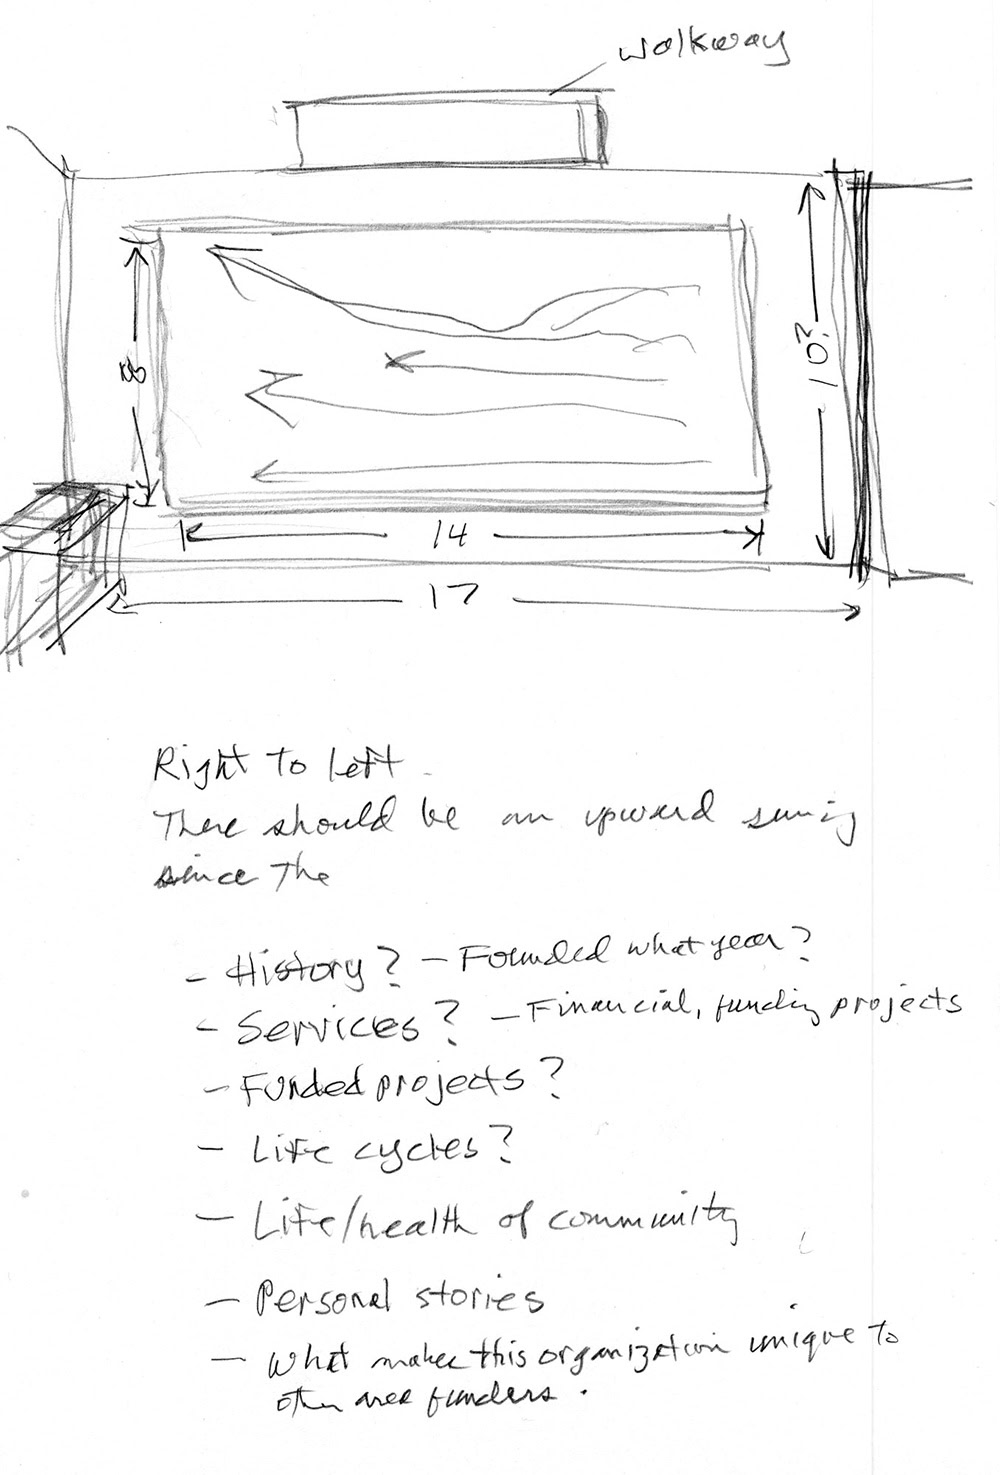 walkway
8
10?
14
17
Right To left
There should be an upward swing
since The
- History? - Founded what year?
- Services? - Financial, funding projects
- Funded projects?
- Life cycles?
- Life/health of community
- Personal stories
- What makes this organization unique to
other area funders.